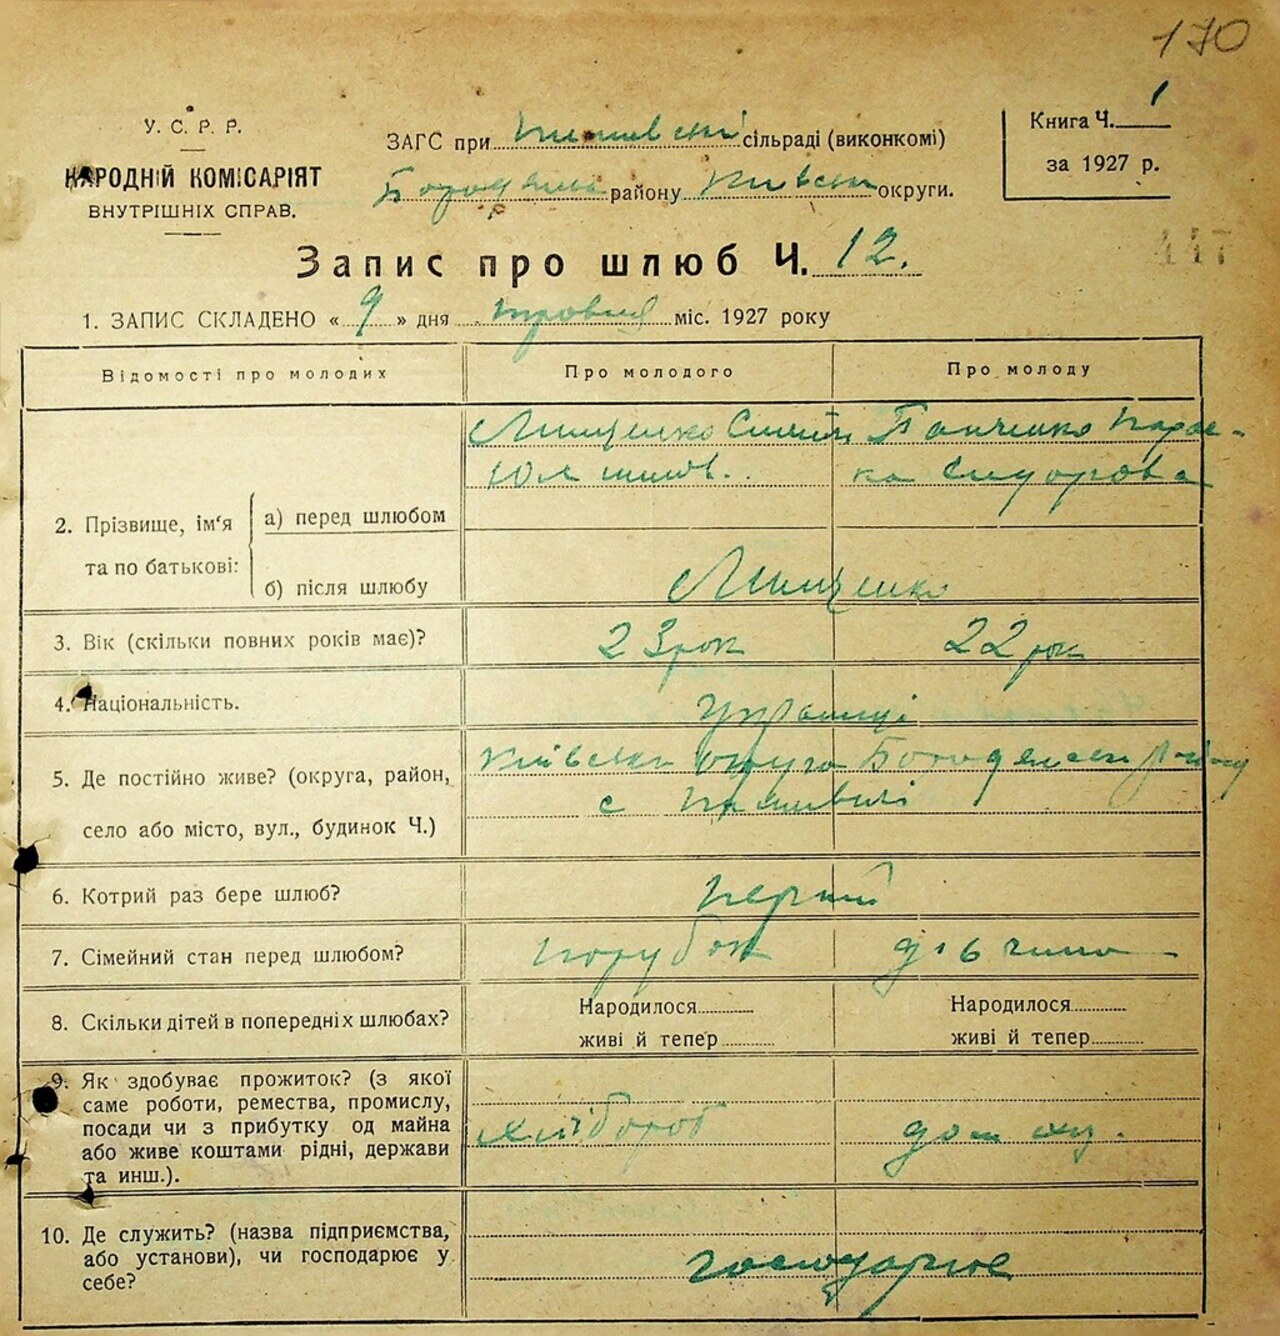 170
У. С. Р. Р.
НАРОДНІЙ КОМІСАРІЯТ
ВНУТРІШНІХ СПРАВ.
ЗАГС при сільраді (виконкомі)
району Київськ округи.
Книга Ч. 1
за 1927 р.
447
Запис про шлюб Ч. 12.
1. ЗАПИС СКЛАДЕНО « 9 » дня травня міс. 1927 року
Відомості про молодих Про молодого Про молоду
2. Прізвище, ім'я та по батькові: а) перед шлюбом
Парас-
ка Сидорова
б) після шлюбу
3. Вік (скільки повних років має)? 23 рок 22 рок
4. Національність. Українці
5. Де постійно живе? (округа, район,
село або місто, вул., будинок Ч.)
Київська округа
с
6. Котрий раз бере шлюб? перший
7. Сімейний стан перед шлюбом? порубок дівчина
8. Скільки дітей в попередніх шлюбах? Народилося Народилося
живі й тепер живі й тепер
9. Як здобуває прожиток? (з якої
саме роботи, ремества, промислу,
посади чи з прибутку од майна
або живе коштами рідні, держави
та инш.).
хлібороб
10. Де служить? (назва підприємства,
або установи), чи господарює у
себе?
господарює